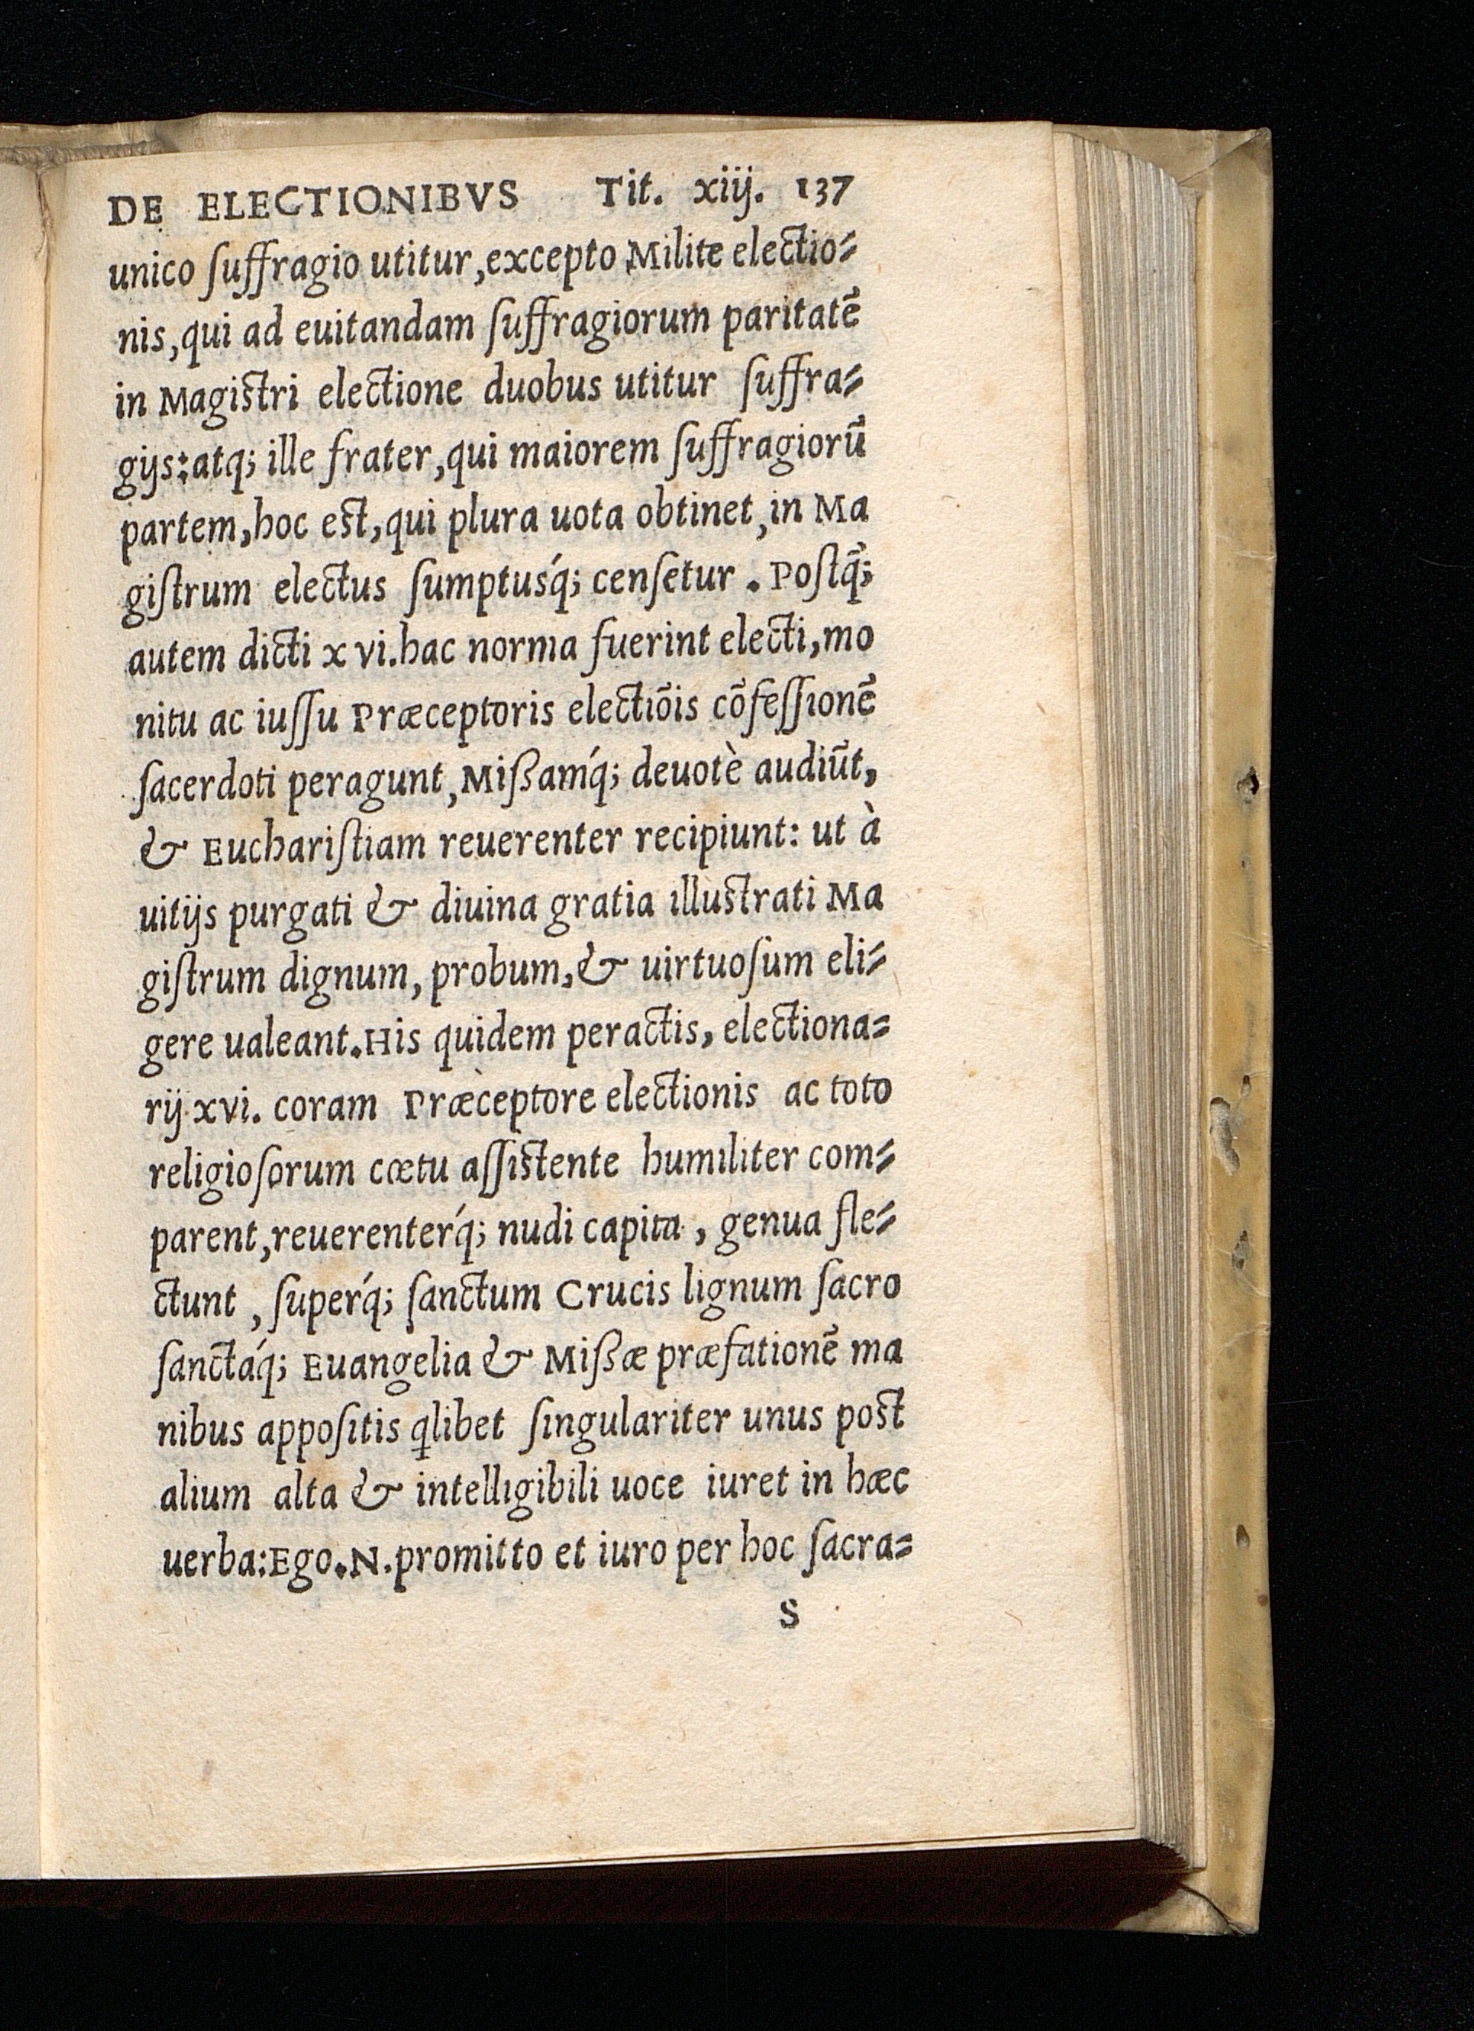 DE ELECTIONIBVS Tit. xiij. 137
unico ſuffragio utitur,excepto Milite electio-
nis,qui ad euitandam ſuffragiorum paritatē
in Magiſtri electione duobus utitur ſuffra-
gijs:atq; ille frater,qui maiorem ſuffragiorū
partem,hoc eſt,qui plura uota obtinet,in Ma
giſtrum electus ſumptusq́; cenſetur. Poſtq̃;
autem dicti xvi.hac norma fuerint electi,mo
nitu ac iuſſu Præceptoris electiōis cōfeſſionē
ſacerdoti peragunt,Miſſamq́; deuotè audiūt,
& Euchariſtiam reuerenter recipiunt: ut à
uitijs purgati & diuina gratia illuſtrati Ma
giſtrum dignum, probum,& uirtuoſum eli-
gere ualeant.His quidem peractis, electiona-
rij xvi. coram Præceptore electionis ac toto
religioſorum cœtu aſſiſtente humiliter com-
parent,reuerenterq́; nudi capita, genua fle-
ctunt, ſuperq́; ſanctum Crucis lignum ſacro
ſanctaq́; Euangelia & Miſſæ præfationē ma
nibus appoſitis ꝗlibet ſingulariter unus poſt
alium alta & intelligibili uoce iuret in hæc
uerba:Ego.N.promitto et iuro per hoc ſacra-
S